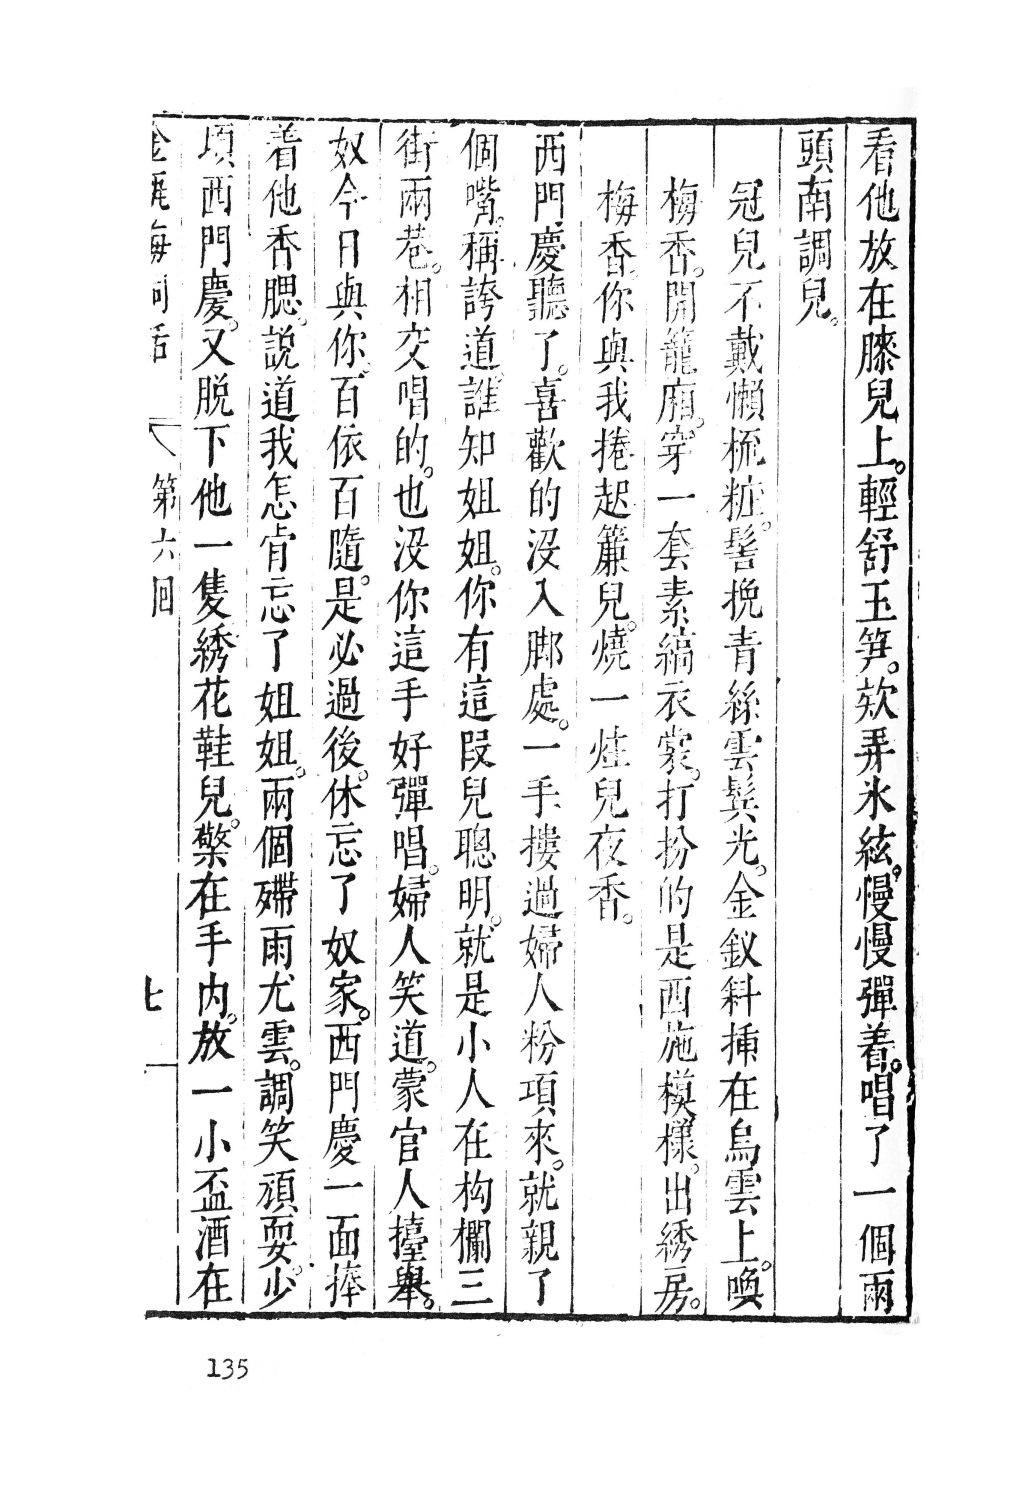 看他放在膝兒上。輕舒玉笋。欵弄氷絃。慢慢彈着。唱了一個兩
頭南調兒。
冠兒不戴懶梳粧。髻挽青絲雲鬂光。金釵斜揷在烏雲上。喚
梅香。開籠廂。穿一套素縞衣裳。打扮的是西施模樣。出綉房。
梅香。你與我捲起簾兒。燒一炷兒夜香。
西門慶聽了。喜歡的沒入脚處。一手摟過婦人粉項來。就親了
個嘴。稱誇道。誰知姐姐。你有這叚兒聰明。就是小人在构欄三
街兩巷。相交唱的。也沒你這手好彈唱。婦人笑道。蒙官人擡舉。
奴今日與你百依百隨。是必過後。休忘了奴家。西門慶一面捧
着他香腮。說道我怎肯忘了姐姐。兩個殢雨尤雲。調笑頑耍。少
項西門慶。又脫下他一隻綉花鞋兒。擎在手內。放一小盃酒在
金瓶梅詞話 第六回 七
135